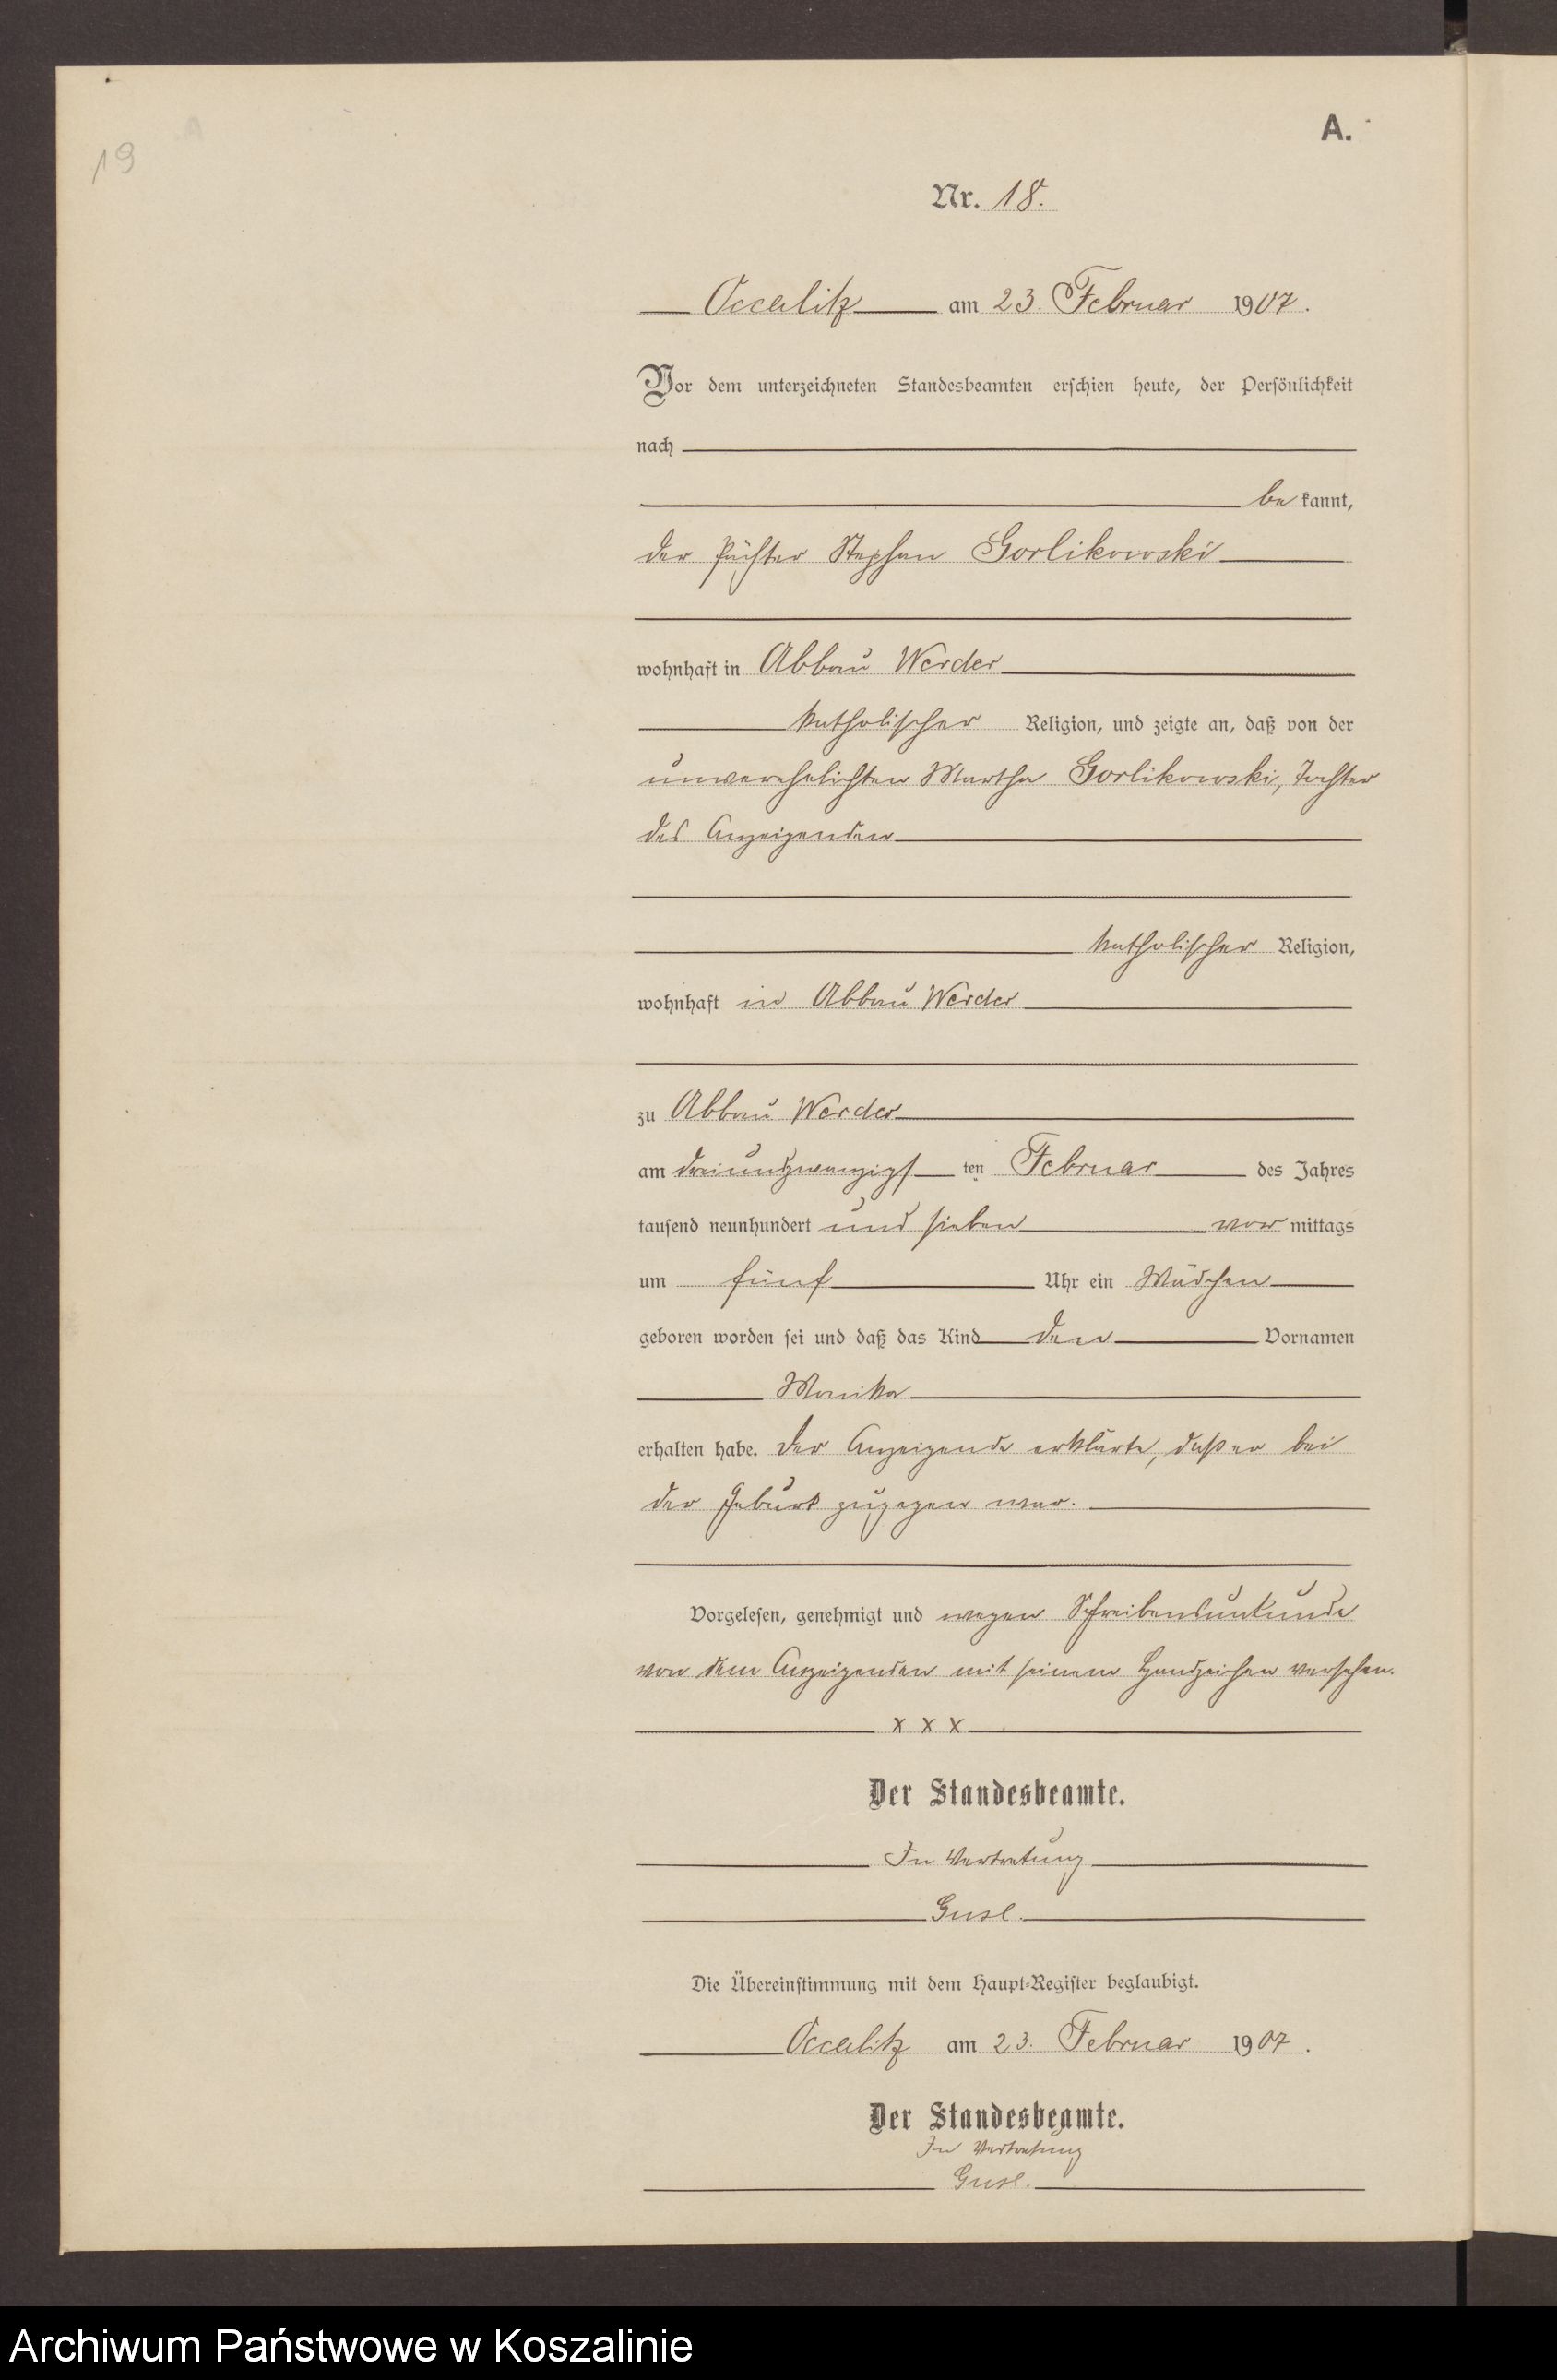 19
A.
Nr. 18.
Occalitz am 23. Februar 1907.
Vor dem unterzeichneten Standesbeamten erschien heute, der Persönlichkeit
nach
be kannt,
der Pächter Stephan Gorlikowski
wohnhaft in Abbau Werder
katholischer Religion, und zeigte an, daß von der
unverehelichten Martha Gorlikowski, Tochter
des Anzeigenden
katholischer Religion,
wohnhaft in Abbau Werder
zu Abbau Werder
am dreiundzwanzigs ten Februar des Jahres
tausend neunhundert und sieben vor mittags
um fünf Uhr ein Mädchen
geboren worden sei und daß das Kind den Vornamen
Monika
erhalten habe. Der Anzeigende erklärte, daß er bei
der Geburt zugegen war.
Vorgelesen, genehmigt und wegen Schreibensunkunde
von dem Anzeigenden mit seinem Handzeichen versehen.
x x x
Der Standesbeamte.
In Vertretung
Die Übereinstimmung mit dem Haupt-Register beglaubigt.
Occalitz am 23. Februar 1907.
Der Standesbeamte.
In Vertretung
Archiwum Państwowe w Koszalinie